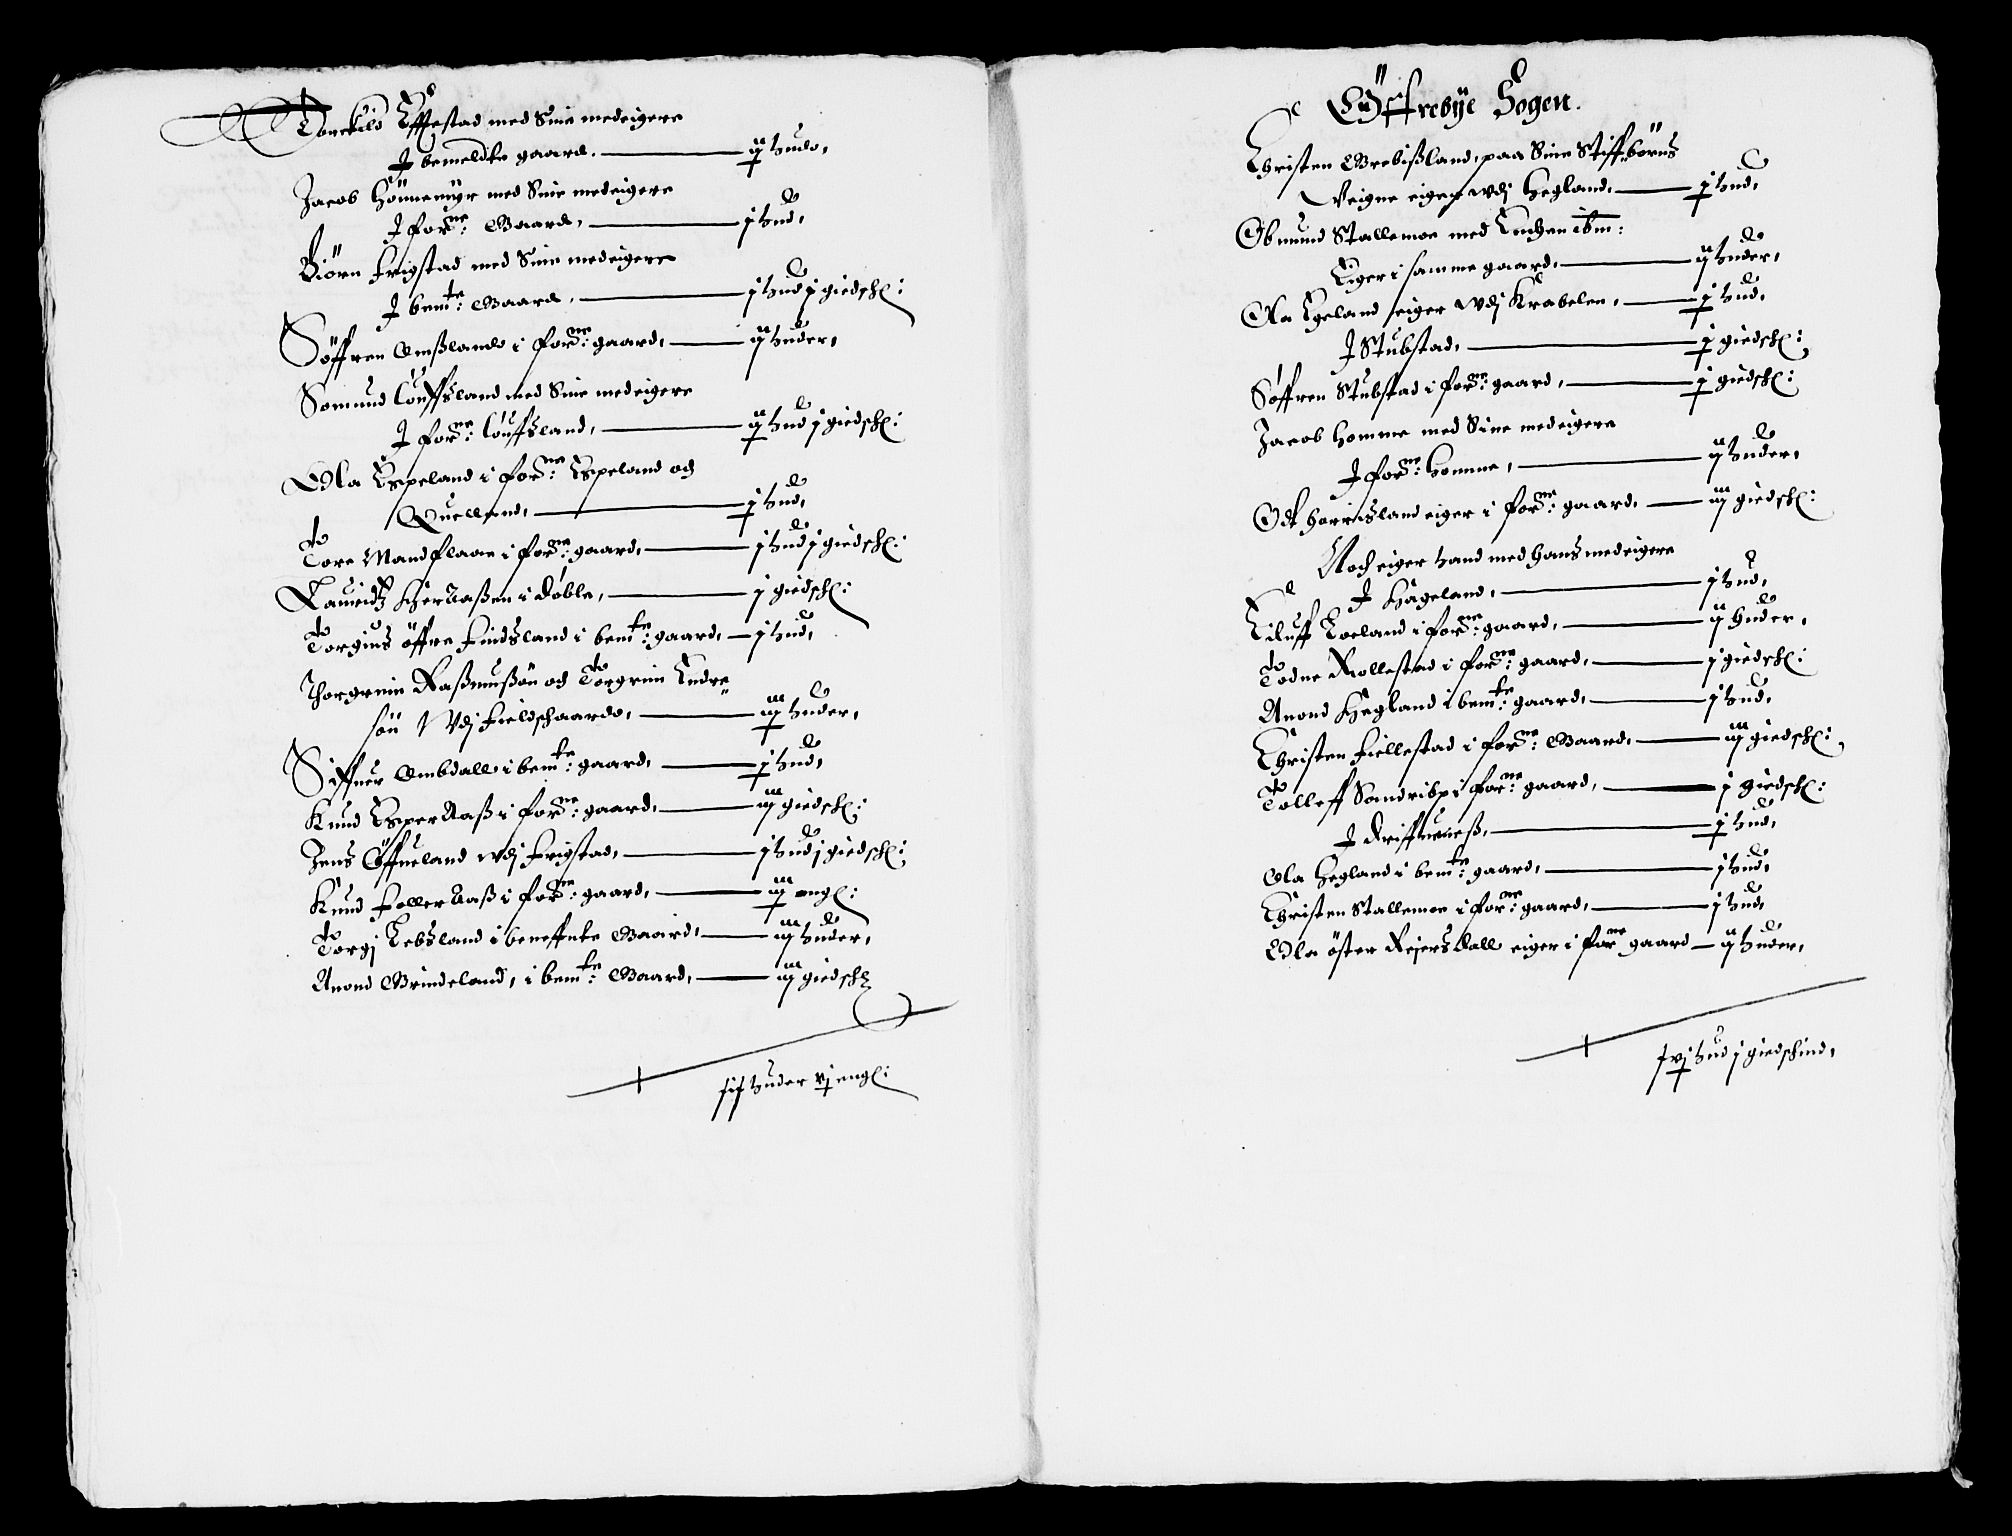 Torckild Effestad med Sine medeigere
J bemeldte gaard. ij Hude,
Jacob Hönnemyr med Sine medeigere
J forne: Gaard, j Hud,
Biörn Frigstad med Sine medeigere
J bemte: Gaard, j Hud j giedsk:
Söffren i forne: gaard, ij Huder,
Somund Löuffsland med Sine medeigere
J forne: Löuffsland, ij Hud j giedsk:
Ola Espeland i forne: Espeland och
Quelland, j Hud,
Tore Mandflaae i forne: gaard, j Hud j giedsk:
Lauridtz i Döble, j giedsk:
Torgius öffre Findsland i bemte: gaard, j Hud,
Thorgrim Rasmussön och Torgrim Endre
sön Vdj Fieldschaarde, iij Huder,
Siffuer Ombdall i bemte: gaard, j Hud,
Knud i forne: gaard, iij giedsk:
Jens Öffueland vdj Frigstad, j Hud j giedsk:
Knud i forne: gaard, iij engl:
Torgj Lebsland i beneffnte Gaard, iij Huder,
Anond Grindeland, i bemte: Gaard, iij giedsk
Huder vj engl:
Öffrebye Sogen.
Christen paa Sine Stiffbörns
Veigne eiger vdj Hegland, j Hud,
Obmund Stallemoe med Enchen ibm:
Eiger i samme gaard, ij Huder,
Ola Egeland eiger vdj Krabelen, j Hud,
J Stubstad, j giedsk:
Söffren Stubstad i forne: gaard, j giedsk:
Jacob Homme med Sine medeigere
J forne: Homme, ij Huder,
Odt Harrisland eiger i forne: gaard, iij giedsk:
Noch eiger Hand med Hans medeigere
J Hägeland, j Hud,
Eiluff Loeland i forne: gaard, ij Huder,
Todne Rollestad i forne: gaard, j giedsk:
Anond Hegland i bemte: gaard, j Hud,
Christen Fiellestad i forne: Gaard, iij giedsk:
Tolleff Sandrib i forne: gaard, j giedsk:
J j Hud,
Ola Hegland i bemte: gaard, j Hud,
Christen Stallemoe i forne: gaard, j Hud,
Ola öster Reiersdall eiger i forne gaard ij Huder,
xvj Hud j giedschind,